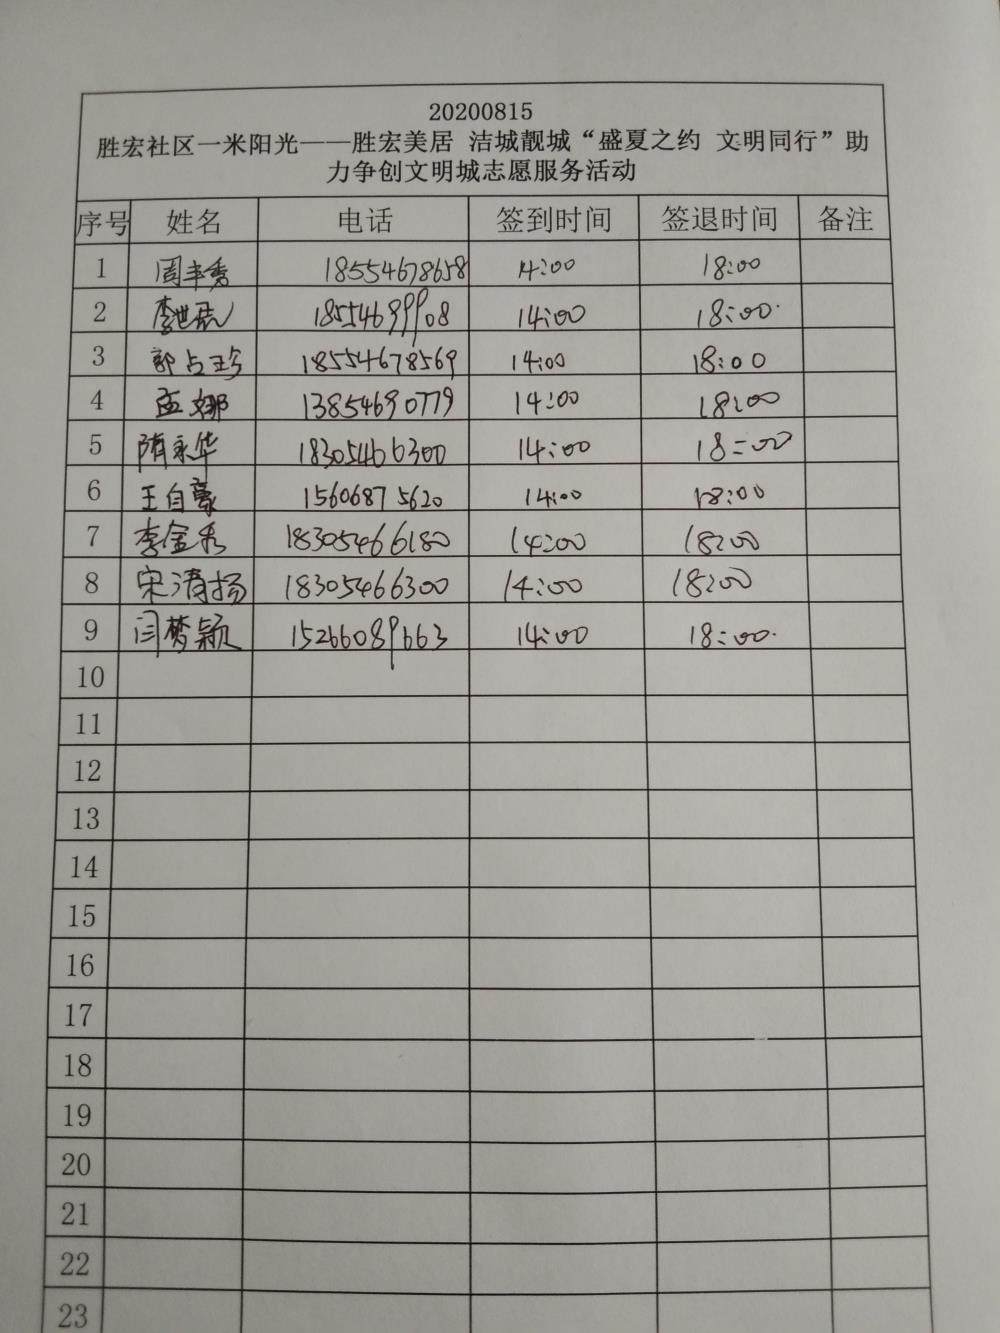 20200815
胜宏社区一米阳光——胜宏美居 洁城靓城“盛夏之约 文明同行”助
力争创文明城志愿服务活动
序号 姓名 电话 签到时间 签退时间 备注
1 周丰秀 18554678658 14:00 18:00
2 李世 18554699908 14:00 18:00
3 郭占珍 18554678569 14:00 18:00
4 孟娜 13854690779 14:00 18:00
5 隋永华 18305466300 14:00 18:00
6 王自豪 15606875620 14:00 18:00
7 李金秀 18305466180 14:00 18:00
8 宋清扬 18305466300 14:00 18:00
9 闫梦颖 15266089663 14:00 18:00
10
11
12
13
14
15
16
17
18
19
20
21
22
23